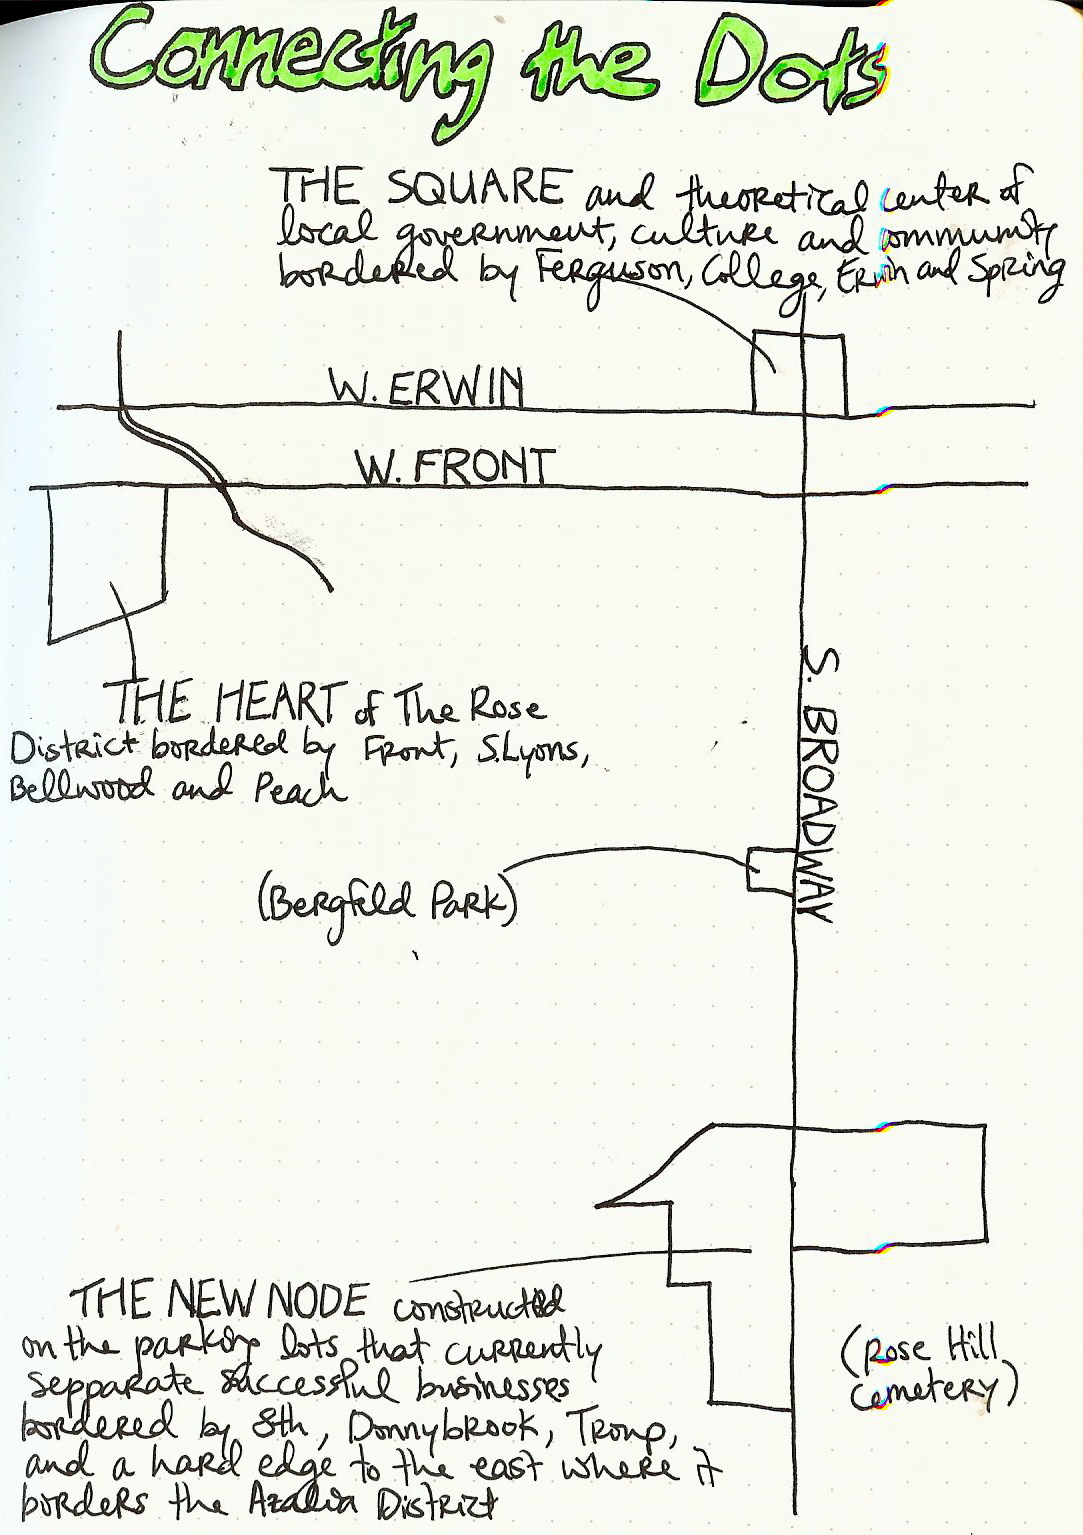 Connecting the Dots
THE SQUARE and theoretical center of
local government, culture and community
bordered by Ferguson, College, Erwin and Spring
W. ERWIN
W. FRONT
S. BROADWAY
THE HEART of The Rose
District bordered by Front, S. Lyons,
Bellwood and Peach
(Bergfeld Park)
THE NEW NODE constructed
on the parking lots that currently
sepparate successful businesses
bordered by 8th, Donnybrook, Troup,
and a hard edge to the east where it
borders the Azalia District
(Rose Hill
cemetery)